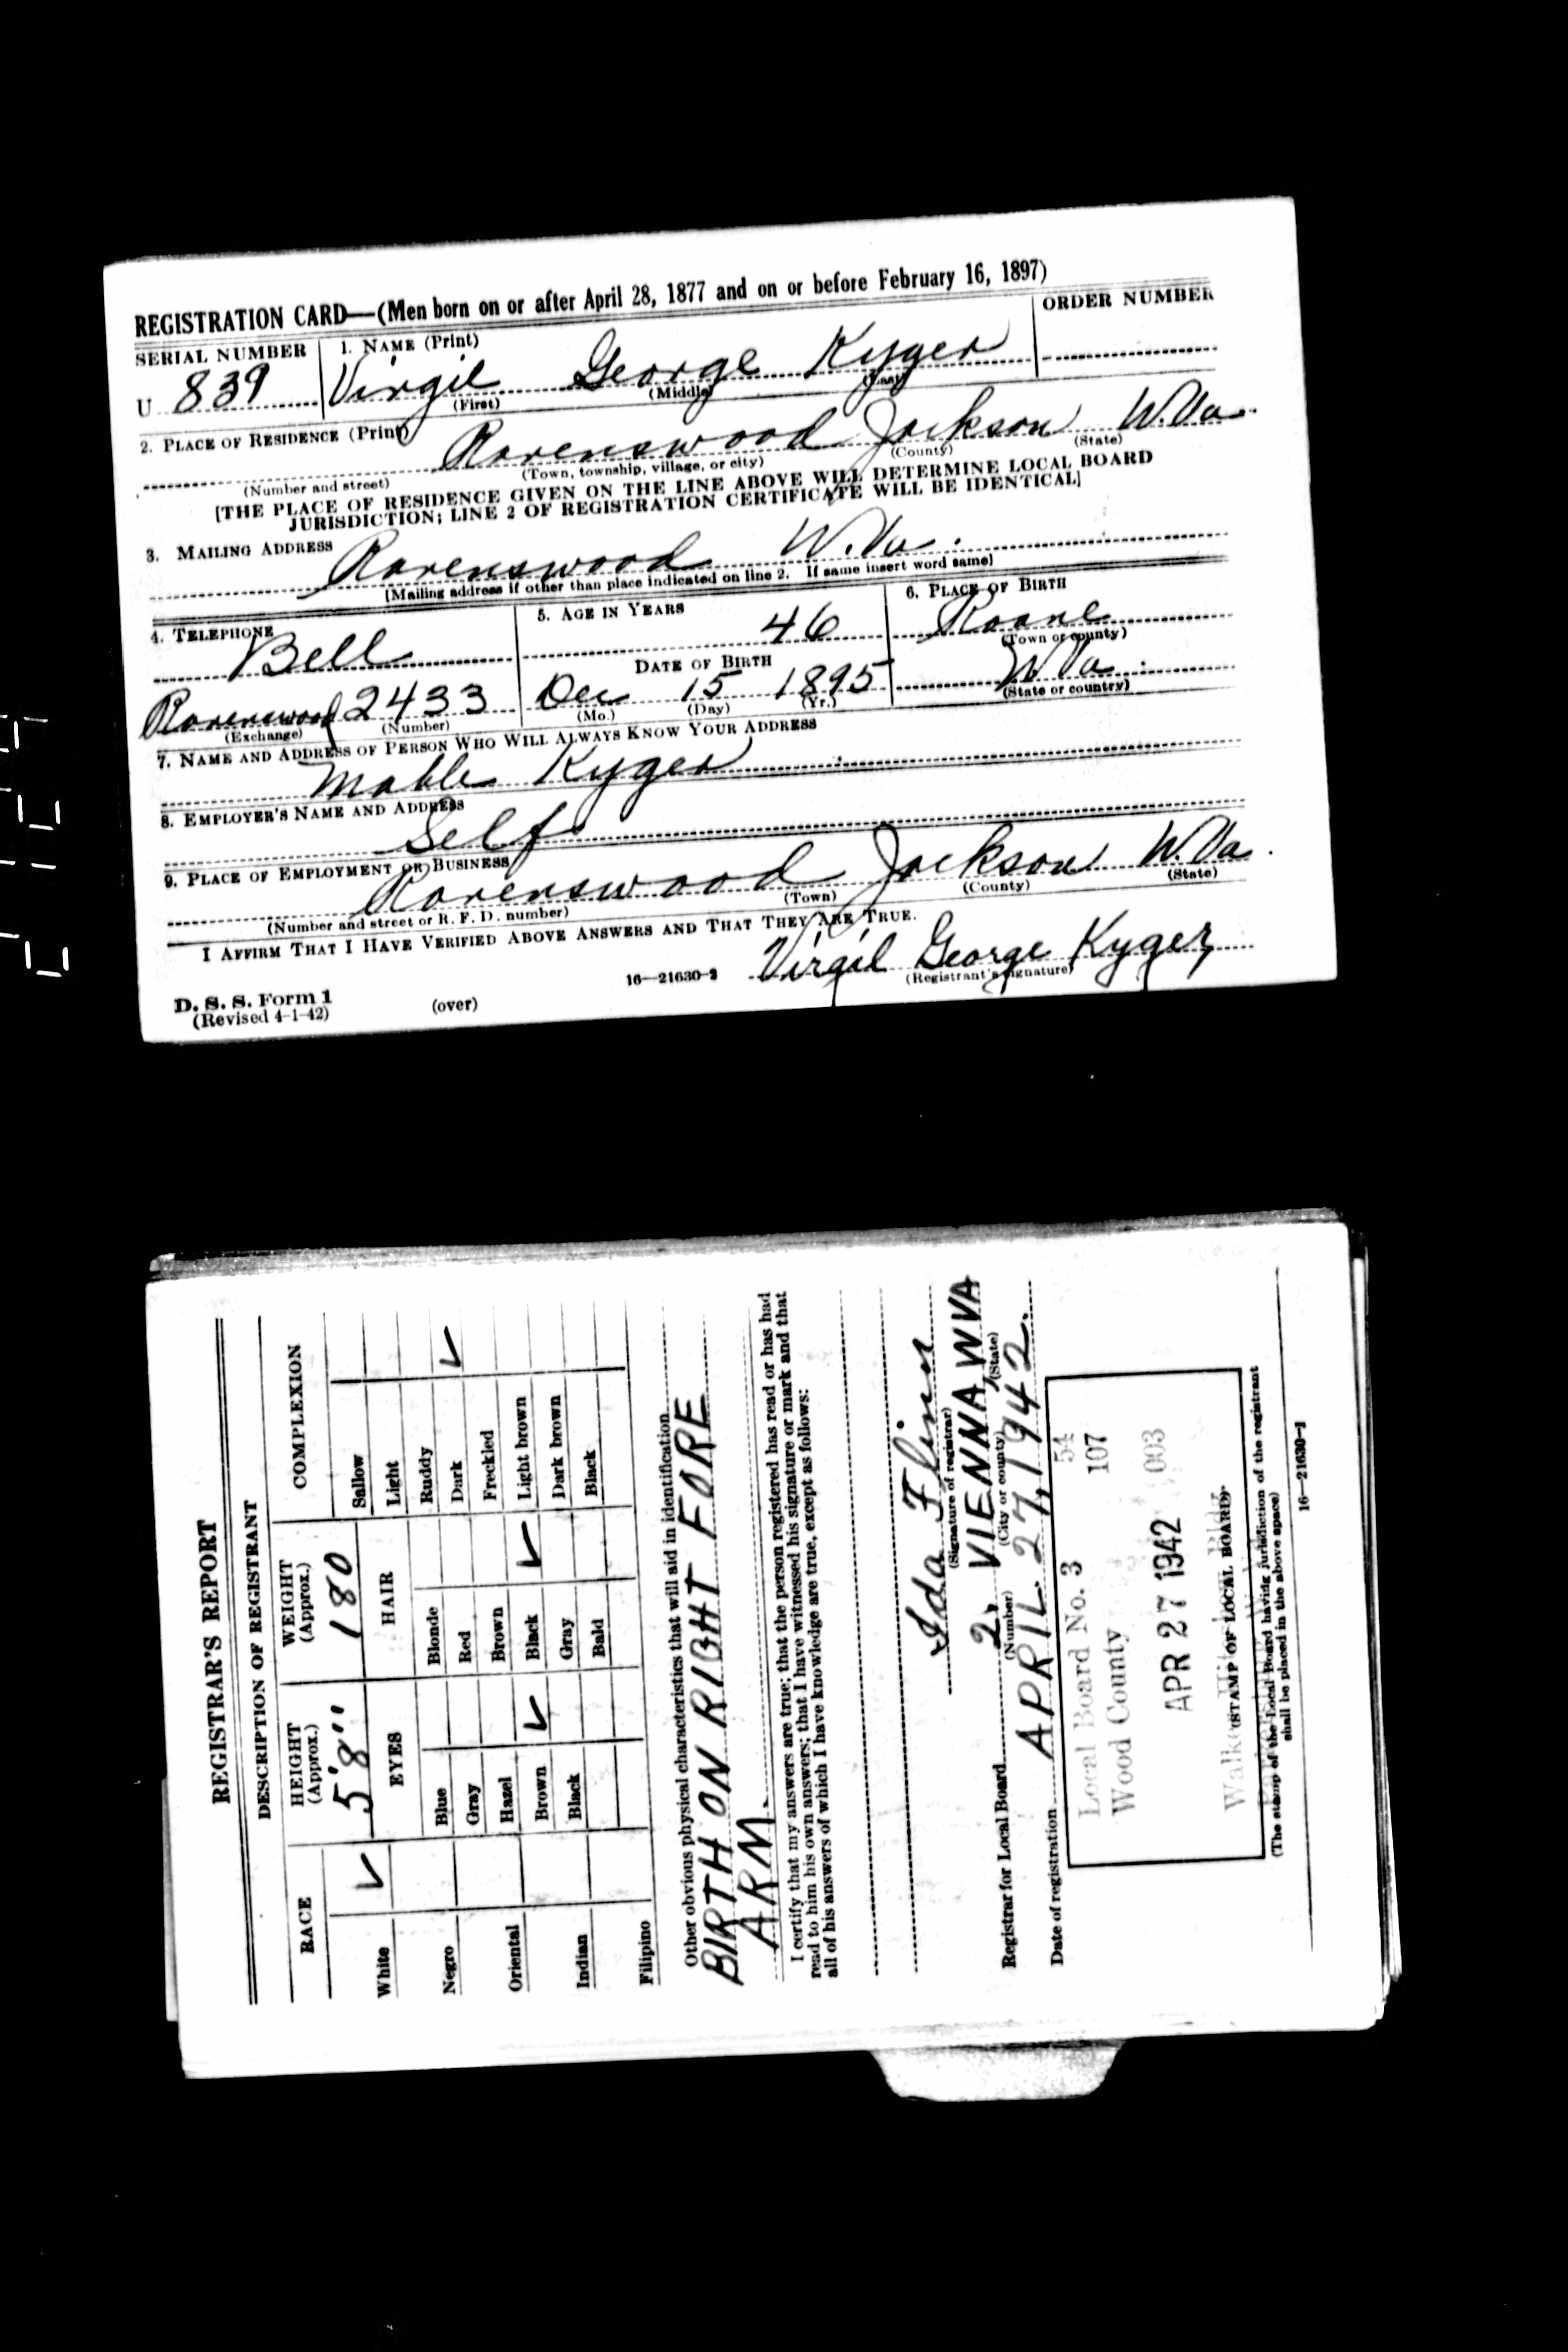 REGISTRATION CARD—(Men born on or after April 28, 1877 and on or before February 16, 1897)
SERIAL NUMBER 1. NAME (Print) ORDER NUMBER
U 839 Virgil George Kyger
(First) (Middle) (Last)
2. PLACE OF RESIDENCE (Print)
Ravenswood Jackson W.Va.
(Number and street) (Town, township, village, or city) (County) (State)
[THE PLACE OF RESIDENCE GIVEN ON THE LINE ABOVE WILL DETERMINE LOCAL BOARD
JURISDICTION; LINE 2 OF REGISTRATION CERTIFICATE WILL BE IDENTICAL]
3. MAILING ADDRESS
Ravenswood W.Va.
[Mailing address if other than place indicated on line 2. If same insert word same]
4. TELEPHONE 5. AGE IN YEARS 6. PLACE OF BIRTH
Bell 46 Roane
(Town or county)
DATE OF BIRTH
Ravenswood 2433 Dec 15 1895 W Va.
(Exchange) (Number) (Mo.) (Day) (Yr.) (State or country)
7. NAME AND ADDRESS OF PERSON WHO WILL ALWAYS KNOW YOUR ADDRESS
Mable Kyger
8. EMPLOYER'S NAME AND ADDRESS
Self
9. PLACE OF EMPLOYMENT OR BUSINESS
Ravenswood Jackson W.Va.
(Number and street or R. F. D. number) (Town) (County) (State)
I AFFIRM THAT I HAVE VERIFIED ABOVE ANSWERS AND THAT THEY ARE TRUE.
Virgil George Kyger
D. S. S. Form 1 (over) 16—21630-2 (Registrant's signature)
(Revised 4-1-42)
REGISTRAR'S REPORT
DESCRIPTION OF REGISTRANT
RACE HEIGHT (Approx.) WEIGHT (Approx.) COMPLEXION
5'8" 180
White ✓ EYES HAIR Sallow
Light
Negro Blue Blonde Ruddy
Gray Red Dark ✓
Oriental Hazel Brown Freckled
Brown ✓ Black ✓ Light brown
Indian Black Gray Dark brown
Bald Black
Filipino
Other obvious physical characteristics that will aid in identification
BIRTH ON RIGHT FORE
ARM.
I certify that my answers are true; that the person registered has read or has had
read to him his own answers; that I have witnessed his signature or mark and that
all of his answers of which I have knowledge are true, except as follows:
Ida Flinn
(Signature of registrar)
Registrar for Local Board 2, VIENNA, W VA
(Number) (City or county) (State)
Date of registration APRIL 27, 1942.
Local Board No. 3 54
Wood County 107
APR 27 1942 003
(STAMP OF LOCAL BOARD)
(The stamp of the Local Board having jurisdiction of the registrant
shall be placed in the above space)
16—21630-1